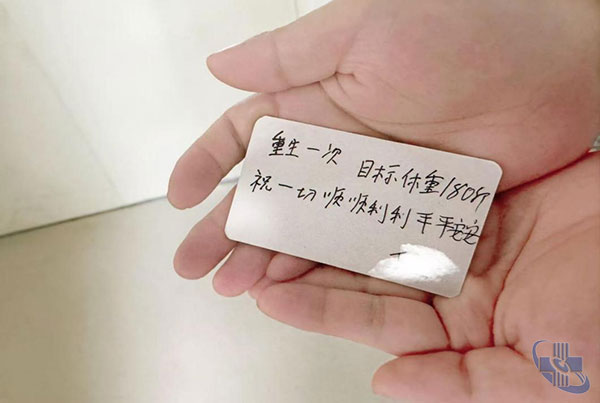 重生一次 目标体重180斤
祝一切顺顺利利平平安安